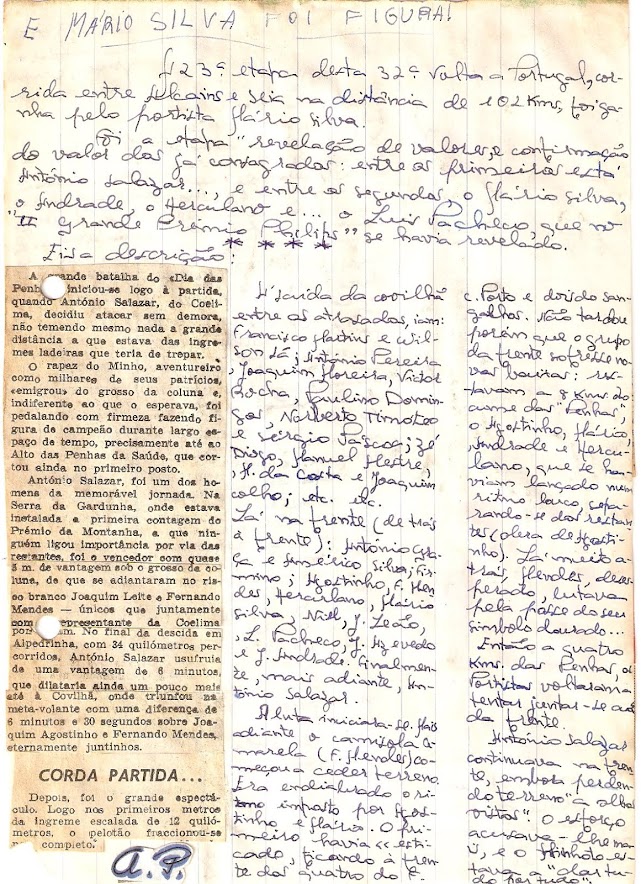 E MÁRIO SILVA FOI FIGURA!
A 23ª etapa desta 32ª Volta a Portugal, cor-
rida entre Alcains e Seia na distância de 102 Kms, foi ga-
nha pelo portista Mário Silva.
Foi a etapa "revelação de valores, e confirmação
do valor dos já consagrados: entre os primeiros está
António Salazar..., e entre os segundos, o Mário Silva,
o Andrade, o Herculano e... o Luís Pacheco, que no
"II Grande Prémio Philips" se havia revelado.
Eis a descrição:
A grande batalha do «Dia das
Penhas» iniciou-se logo à partida,
quando António Salazar, do Coeli-
ma, decidiu atacar sem demora,
não temendo mesmo nada a grande
distância a que estava das íngre-
mes ladeiras que teria de trepar.
O rapaz do Minho, aventureiro
como milhares de seus patrícios,
«emigrou» do grosso da coluna e,
indiferente ao que o esperava, foi
pedalando com firmeza fazendo fi-
gura de campeão durante largo es-
paço de tempo, precisamente até ao
Alto das Penhas da Saúde, que cor-
tou ainda no primeiro posto.
António Salazar, foi um dos ho-
mens da memorável jornada. Na
Serra da Gardunha, onde estava
instalada a primeira contagem do
Prémio da Montanha, a que nin-
guém ligou importância por via das
restantes, foi o vencedor com quase
3 m. de vantagem sob o grosso da co-
luna, de que se adiantaram no ris-
so branco Joaquim Leite e Fernando
Mendes — únicos que juntamente
com representante da Coelima
No final da descida em
Alpedrinha, com 34 quilómetros per-
corridos, António Salazar usufruia
de uma vantagem de 6 minutos,
que dilataria ainda um pouco mais
até à Covilhã, onde triunfou na
meta-volante com uma diferença de
6 minutos e 30 segundos sobre Joa-
quim Agostinho e Fernando Mendes,
eternamente juntinhos.
CORDA PARTIDA...
Depois, foi o grande espectá-
culo. Logo nos primeiros metros
da íngreme escalada de 12 quiló-
metros, o pelotão fraccionou-se
completo.
A.P.
À saída da Covilhã
entre os atrasados, iam:
Francisco Martins e Wil-
son Sá; António Pereira,
Joaquim Moreira, Victor
Rocha, Paulino Domin-
gos, Norberto Timóteo
e Sérgio Páscoa; Zé
Diogo, Manuel Mestre,
H. da Costa e Joaquim
Coelho; etc. etc.
Lá na frente (de trás
à frente): António Gra-
ça e Américo Silva; Fir-
mino; Agostinho, F. Men-
des, Herculano, Mário
Silva, J. Leão,
L. Pacheco, J. Azevedo
e J. Andrade. Finalmen-
te, mais adiante, An-
tónio Salazar.
A luta iniciara-se. Mais
adiante o camisola a-
marela (F. Mendes) co-
meçou a ceder terreno.
Era endiabrado o ri-
tmo imposto por Agos-
tinho e Mário. O pri-
meiro havia «esti-
cado, ficando à frente
dos quatro do F.
C. Porto e dois do San-
galhos. Não tardou
porém que o grupo
da frente sofresse no-
vas baixas: res-
tavam a 8 Kms do
cume das "Penhas",
o Agostinho, Mário,
Andrade e Hercu-
lano, que se ha-
viam lançado num
ritmo louco, sepa-
rando-se dos restan-
tes (obra de Agosti-
nho). Lá muito a-
trás, Mendes, deses-
perado, lutava
pela posse do seu
símbolo dourado...
Então a quatro
Kms. das Penhas, os
Portistas voltaram a
tentar juntar-se aos
da frente.
António Salazar
continuava na fren-
te, embora perden-
do terreno "a olhos
vistos". O esforço
acusava-lhe mais